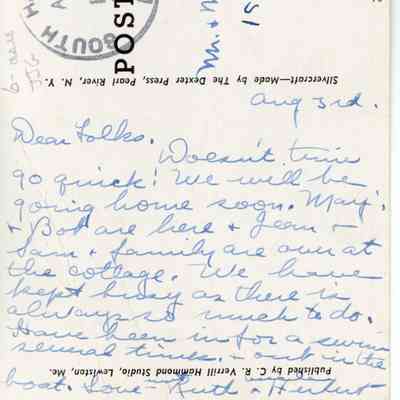 SOUTH
POST
Mr. &
15
6-
Silvercraft—Made by The Dexter Press, Pearl River, N. Y.
Aug 3rd.
Dear Folks.
Doesn't time
go quick! We will be
going home soon. Marj.
+ Bob are here + Jean +
Sam + family are over at
the cottage. We have
kept busy as there is
always so much to do.
Have been in for a swim
several times. + out in the
Published by C. R. Verrill Hammond Studio, Lewiston, Me.
boat. Love Ruth + Herbert